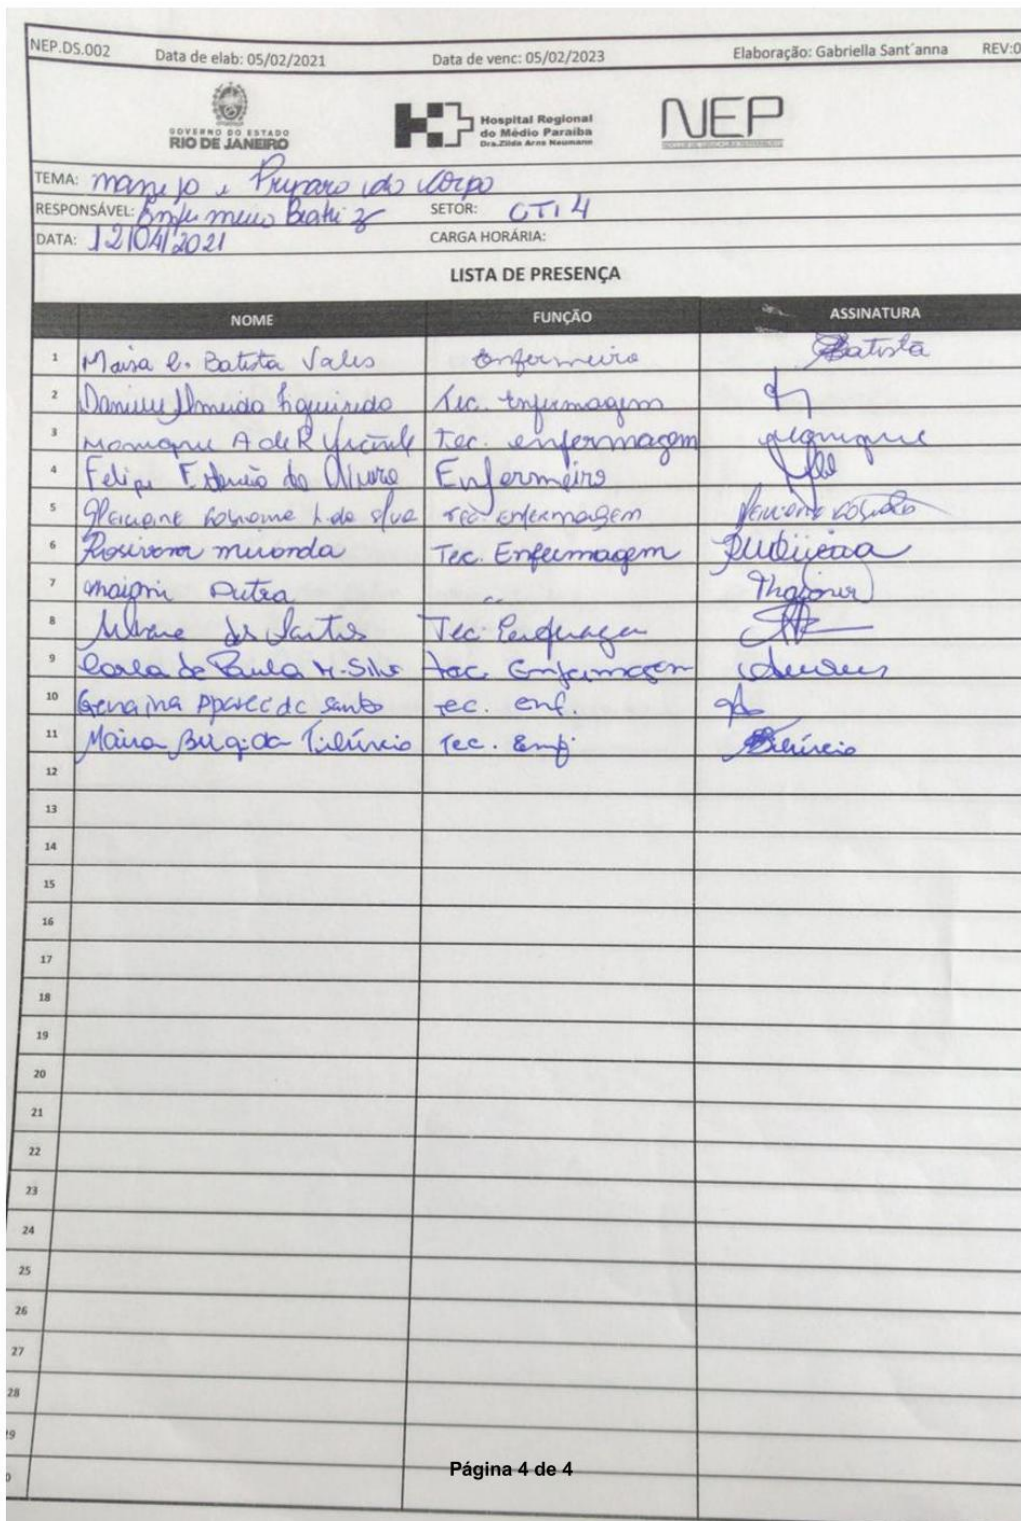 NEP.DS.002 Data de elab: 05/02/2021 Data de venc: 05/02/2023 Elaboração: Gabriella Sant´anna REV:0
GOVERNO DO ESTADO
RIO DE JANEIRO
Hospital Regional
do Médio Paraíba
Dra.Zilda Arns Neumann
NEP
TEMA: manejo e Preparo do corpo
RESPONSÁVEL: Enfermeiro Beatriz SETOR: CTI 4
DATA: 12/04/2021 CARGA HORÁRIA:
LISTA DE PRESENÇA
NOME FUNÇÃO ASSINATURA
1 Maisa C. Batista Vales Enfermeira Batista
2 Almeida Figueiredo Tec. Enfermagem
3 Monique A de R Tec. enfermagem Monique
4 Felipe de Enfermeiro
5 da Silva Tec. enfermagem
6 Rosivana miranda Tec. Enfermagem
7 Dutra
8 dos Santos Tec.
9 Carla de Paula M. Silva Tec. Enfermagem
10 Genaina Aparec de Santo Tec. enf.
11 Maira Brigida Tibúrcio Tec. Enf. Tibúrcio
12
13
14
15
16
17
18
19
20
21
22
23
24
25
26
27
28
29
0
Página 4 de 4